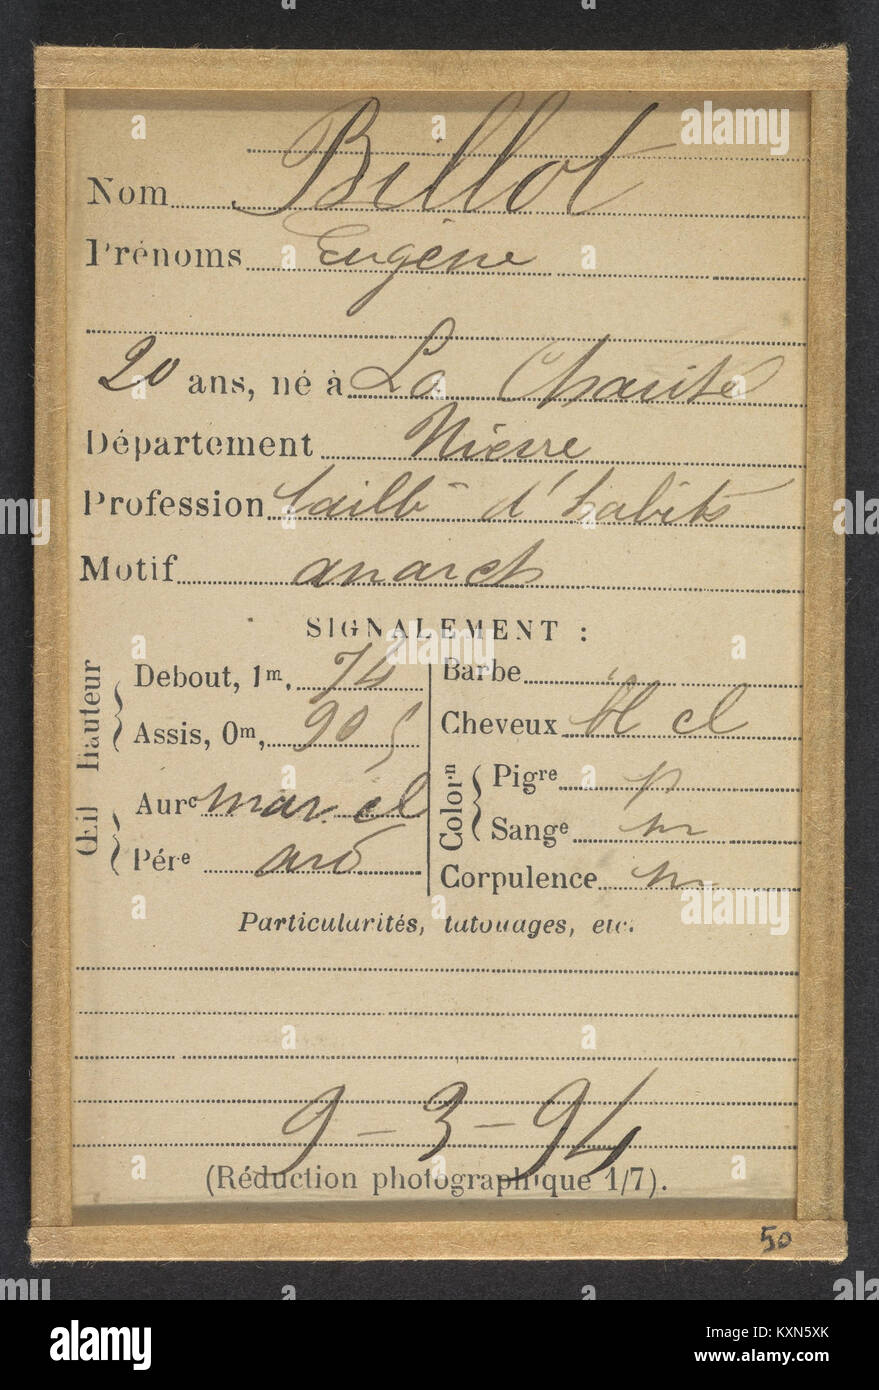 Nom Billot
Prénoms Eugène
20 ans, né à La Charité
Département Nièvre
Profession taillr d'habits
Motif anarch
SIGNALEMENT :
Hauteur
Debout, 1m, 74
Assis, 0m, 90 5
Œil
Aure mar. cl
Pére
Barbe
Cheveux bl cl
Colorn
Pigre p
Sange m
Corpulence m
Particularités, tatouages, etc.
9-3-94
(Réduction photographique 1/7).
50
alamy
Image ID: KXN5XK
www.alamy.com